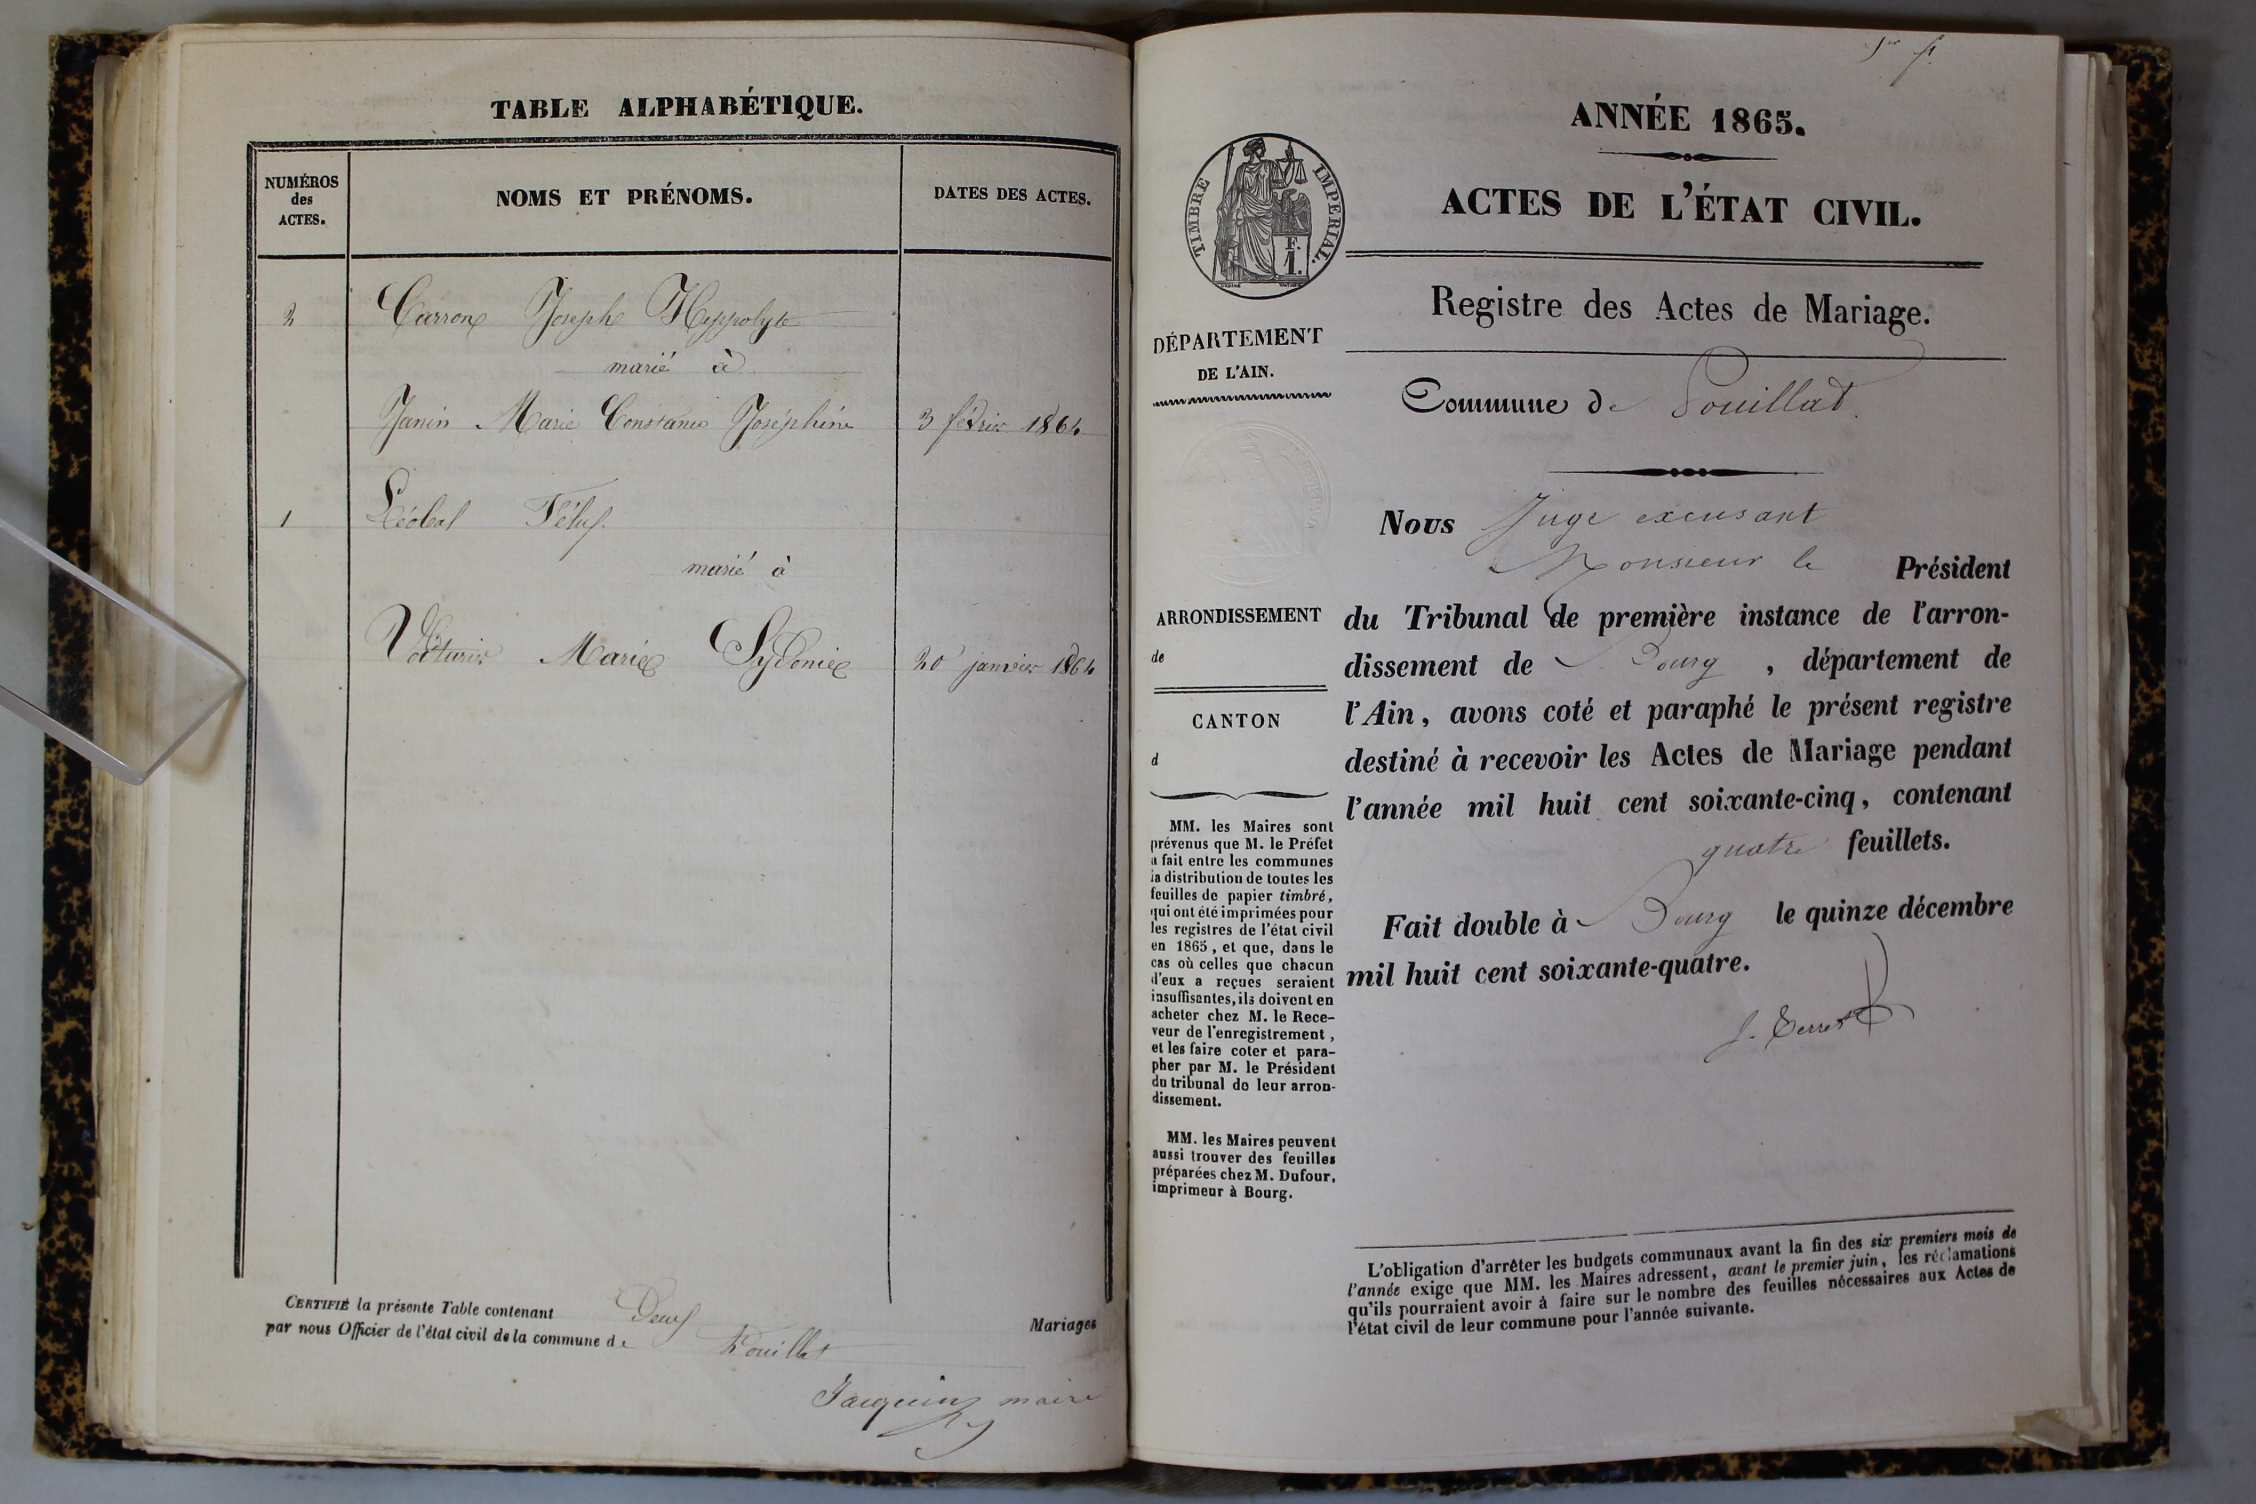 TABLE ALPHABÉTIQUE.
NUMÉROS
des
ACTES.
NOMS ET PRÉNOMS.
DATES DES ACTES.
2
Carron Joseph Hyppolyte
marié à
Janin Marie Constance Joséphine 3 février 1864
1
Félix
marié à
Voiturier Marie Sydonie 20 janvier 1864
CERTIFIÉ la présente Table contenant Deux Mariages
par nous Officier de l'état civil de la commune de Pouillat
Jacquin maire
1er f.
ANNÉE 1865.
ACTES DE L'ÉTAT CIVIL.
TIMBRE IMPERIAL.
F.
1.
Registre des Actes de Mariage.
DÉPARTEMENT
DE L'AIN.
Commune de Pouillat
Nous Juge excusant
Monsieur le Président
du Tribunal de première instance de l'arron-
dissement de Bourg, département de
l'Ain, avons coté et paraphé le présent registre
destiné à recevoir les Actes de Mariage pendant
l'année mil huit cent soixante-cinq, contenant
quatre feuillets.
Fait double à Bourg le quinze décembre
mil huit cent soixante-quatre.
ARRONDISSEMENT
de
CANTON
d
MM. les Maires sont
prévenus que M. le Préfet
a fait entre les communes
la distribution de toutes les
feuilles de papier timbré,
qui ont été imprimées pour
les registres de l'état civil
en 1865, et que, dans le
cas où celles que chacun
d'eux a reçues seraient
insuffisantes, ils doivent en
acheter chez M. le Rece-
veur de l'enregistrement,
et les faire coter et para-
pher par M. le Président
du tribunal de leur arron-
dissement.
MM. les Maires peuvent
aussi trouver des feuilles
préparées chez M. Dufour,
imprimeur à Bourg.
L'obligation d'arrêter les budgets communaux avant la fin des six premiers mois de
l'année exige que MM. les Maires adressent, avant le premier juin, les réclamations
qu'ils pourraient avoir à faire sur le nombre des feuilles nécessaires aux Actes de
l'état civil de leur commune pour l'année suivante.